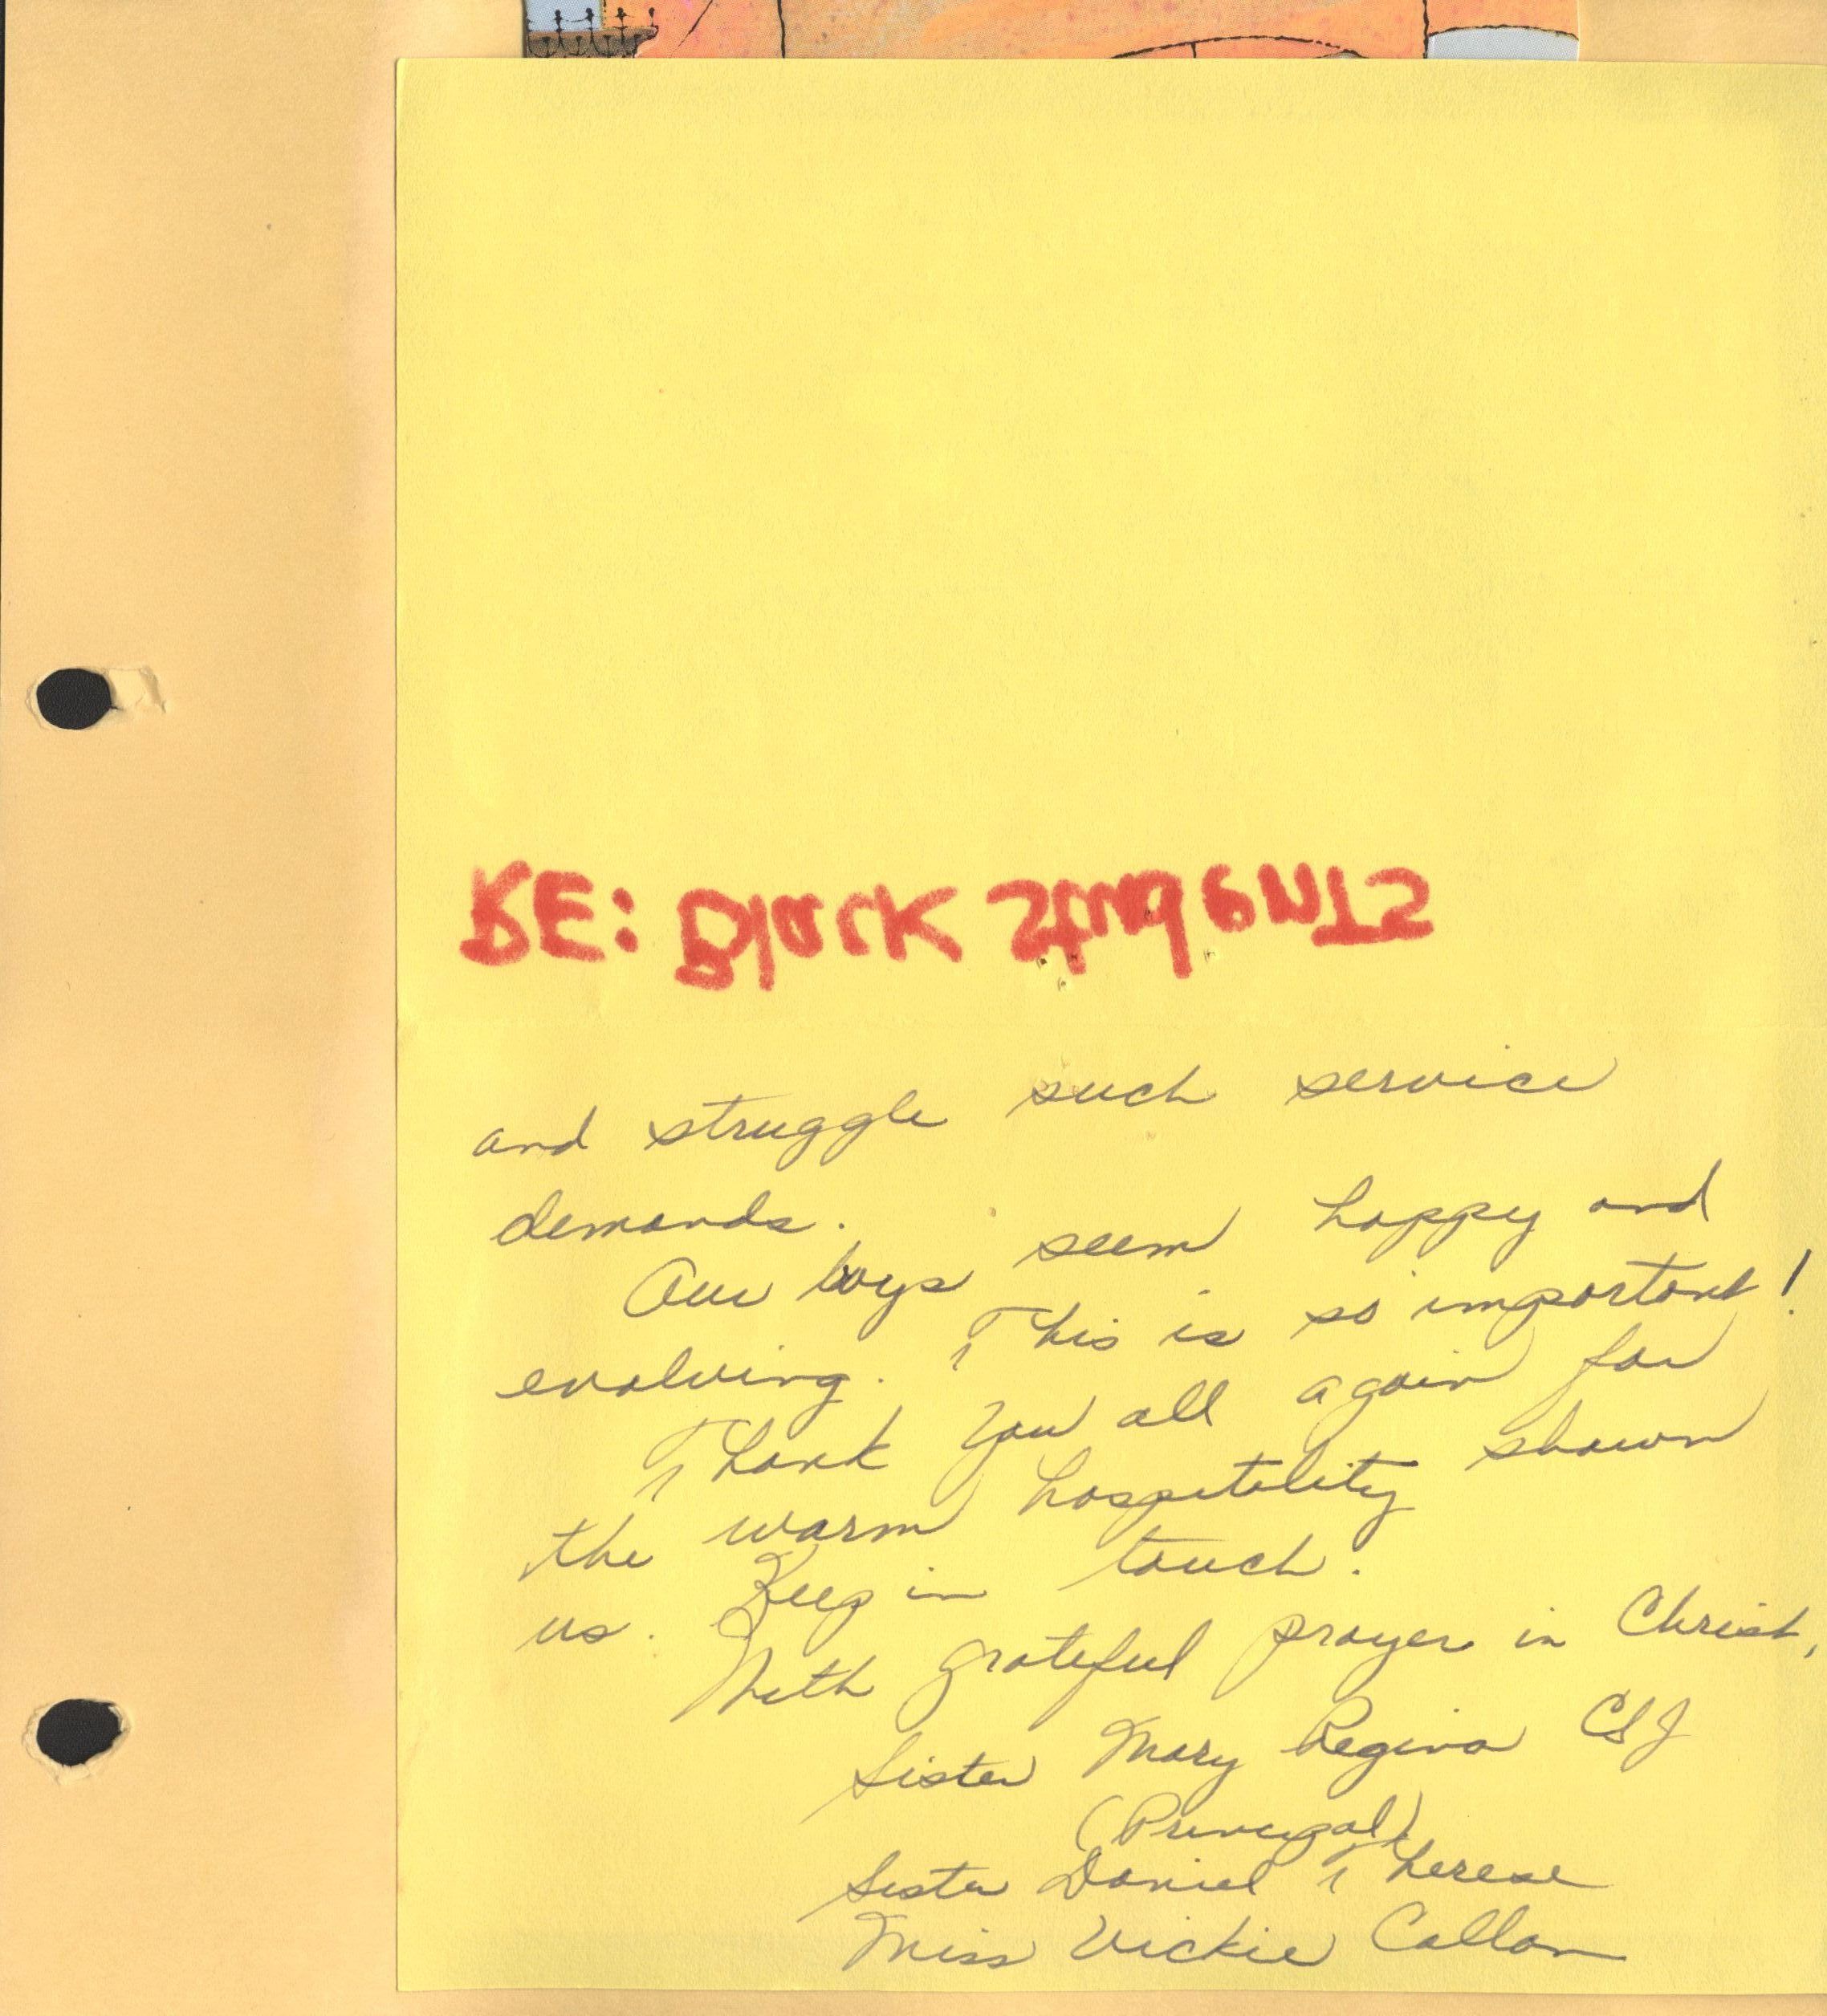 RE: Black Students
and struggle such service
demands.
Our boys seem happy and
evolving. This is so important!
Thank you all again for
the warm hospitality shown
us. Keep in touch.
With grateful prayer in Christ,
Sister Mary Regina CSJ
(Principal)
Sister Daniel Therese
Miss Vickie Callan